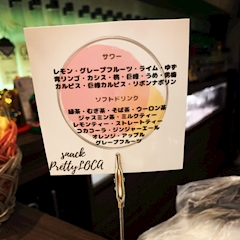 サワー
レモン・グレープフルーツ・ライム・ゆず
青リンゴ・カシス・桃・巨峰・うめ・男梅
カルピス・巨峰カルピス・リボンナポリン
ソフトドリンク
緑茶・むぎ茶・そば茶・ウーロン茶
ジャスミン茶・ミルクティー
レモンティー・ストレートティー
コカコーラ・ジンジャーエール
オレンジ・アップル
グレープフルーツ
snack
PrettyLOCA